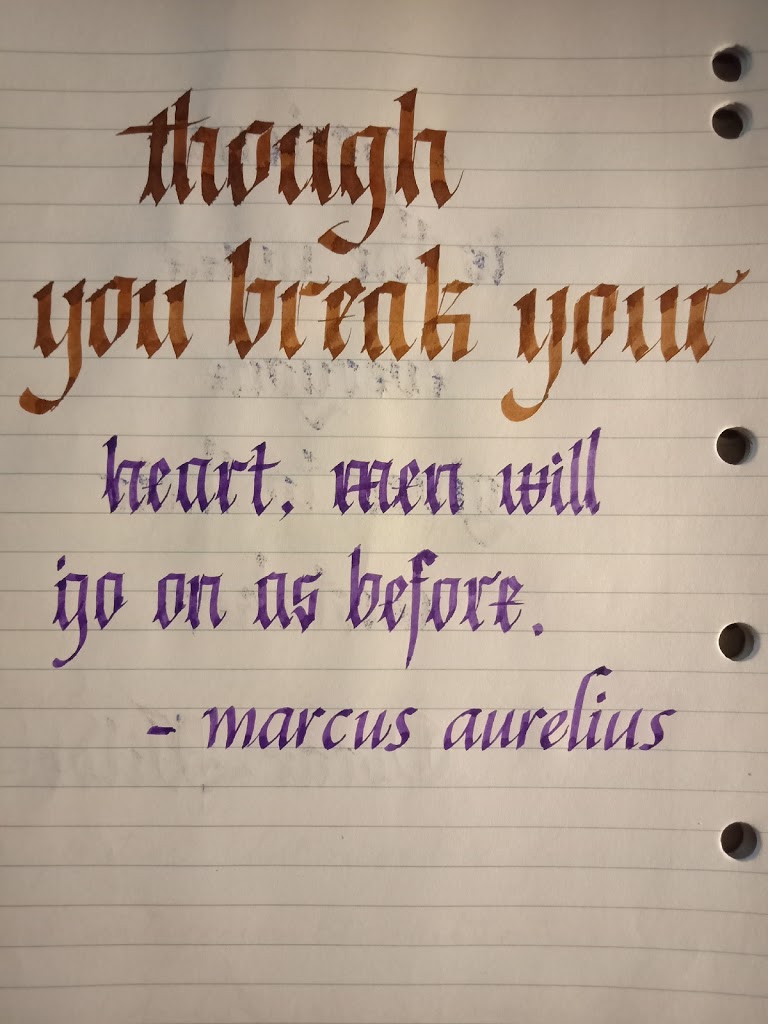 though
you break your
heart, men will
go on as before.
- marcus aurelius